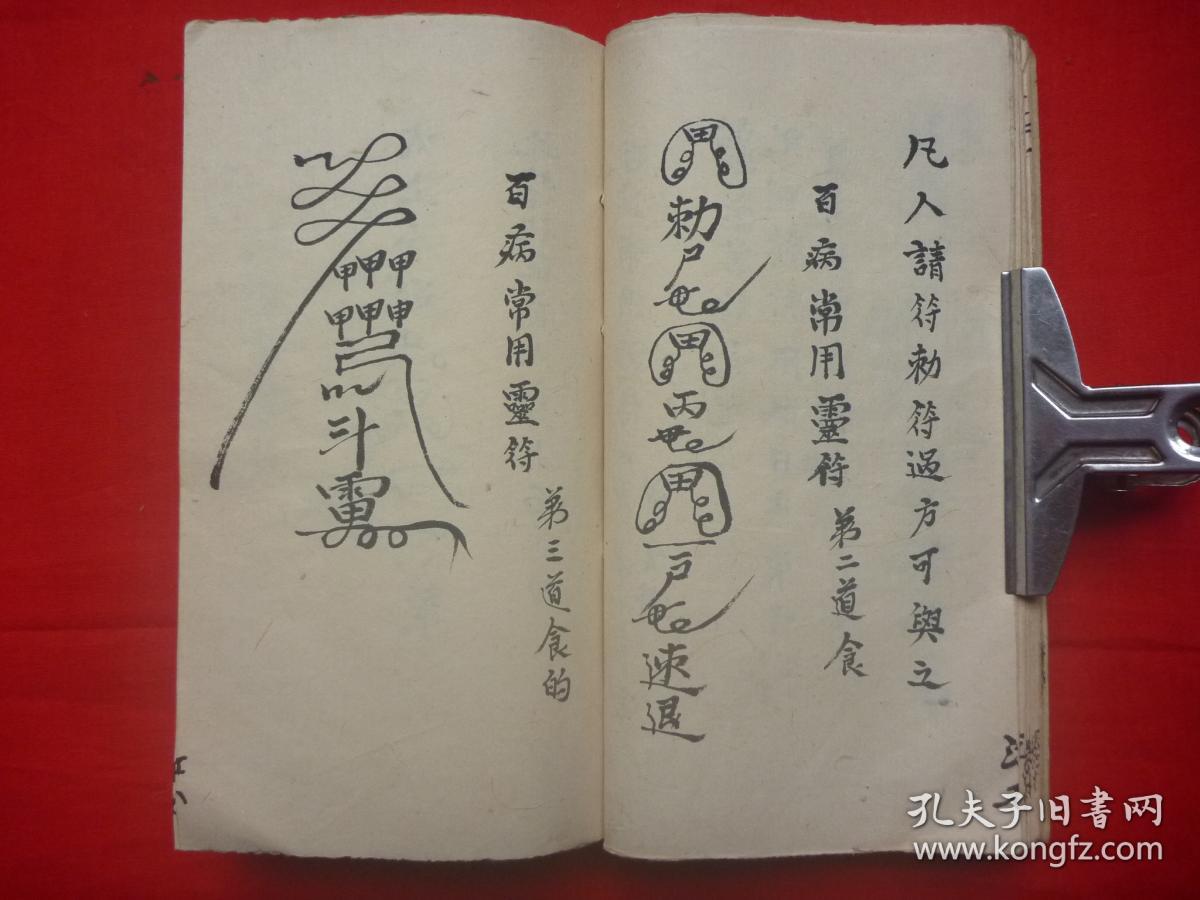 凡人請符勅符過方可與之
百病常用靈符 第二道食
勅
丙
速退
百病常用靈符 第三道食的
甲甲甲
斗
孔夫子旧书网
www.kongfz.com